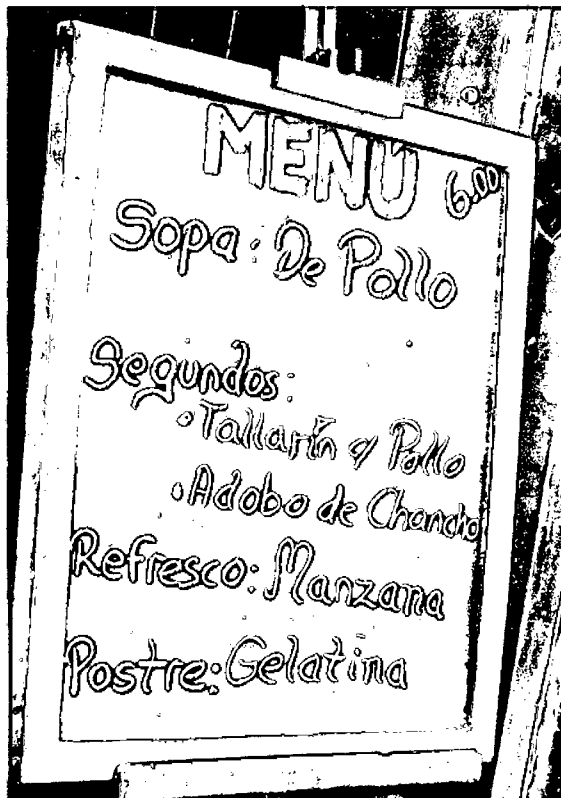 MENÚ 6.00
Sopa: De Pollo
Segundos:
• Tallarín c/ Pollo
• Adobo de Chancho
Refresco: Manzana
Postre: Gelatina